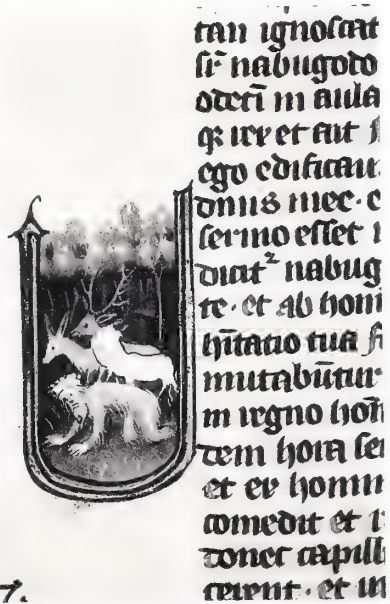 tan ignoscat
sic̄ nabugodo
odecī in aula
qꝫ rex et ait
ego edificau
onus mee . e
sermo esset i
dicit² nabug
te . et ab homi
hītatio tua f
mutabūtur
in regno hoī
dem hora ser
et ex homin
comedit et
donec capill
cerent . et un
7.